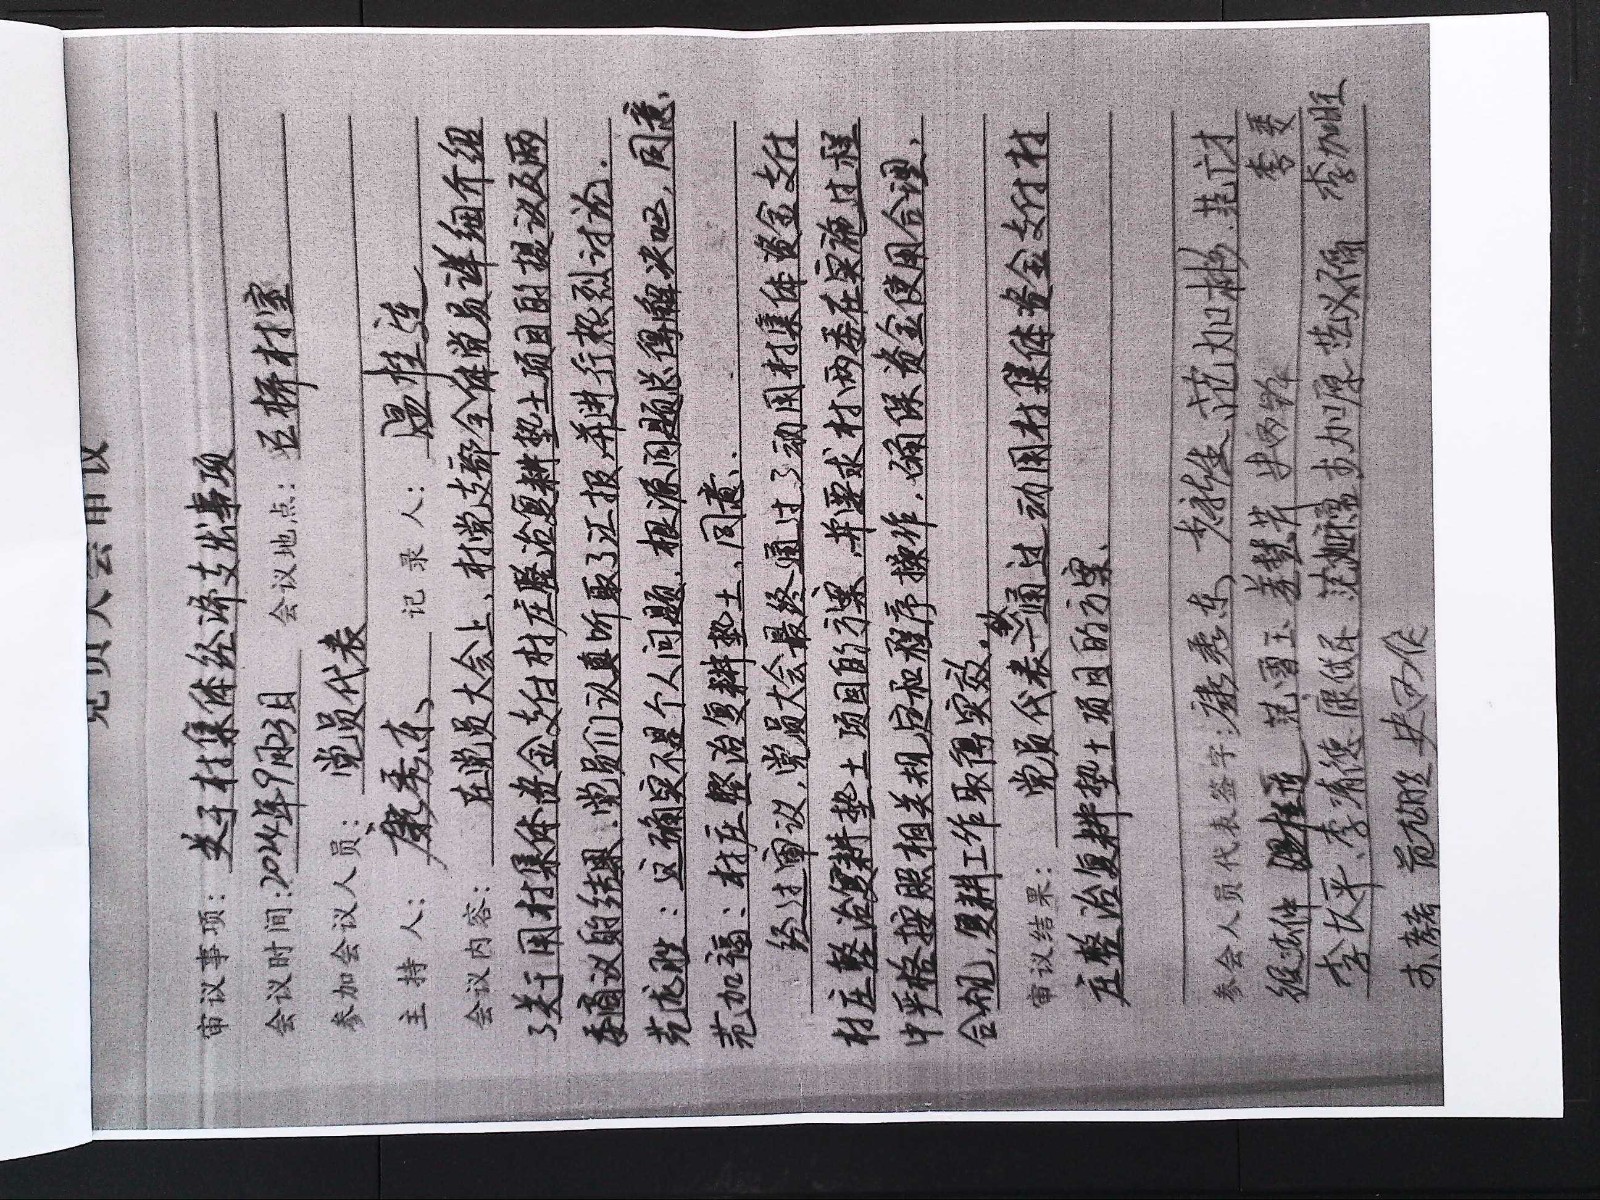 党员大会审议
审议事项：关于村集体经济支出事项
会议时间：2024年9月23日 会议地点：五桥村室
参加会议人员：党员代表
主持人：康秀东 记录人：温桂连
会议内容：在党员大会上，村党支部全体党员详细介绍
了关于用村集体资金支付村庄整治复耕垫土项目的提议及两
委商议的结果，党员们认真听取了汇报并进行热烈讨论.
范龙胜：这确实不是个人问题，根源问题总得解决吧，同意.
范加福：村庄整治复耕垫土，同意.
经过审议，党员大会最终通过了动用村集体资金支付
村庄整治复耕垫土项目的方案，并要求村两委在实施过程
中严格按照相关规定和程序操作，确保资金使用合理，
合规，复耕工作取得实效.
审议结果：党员代表一致通过动用村集体资金支付村
庄整治复耕垫土项目的方案.
参会人员代表签字：康秀东 李永生 范加彬 范广才
温桂连 范雷玉 李
李太平 李清德 李加旺